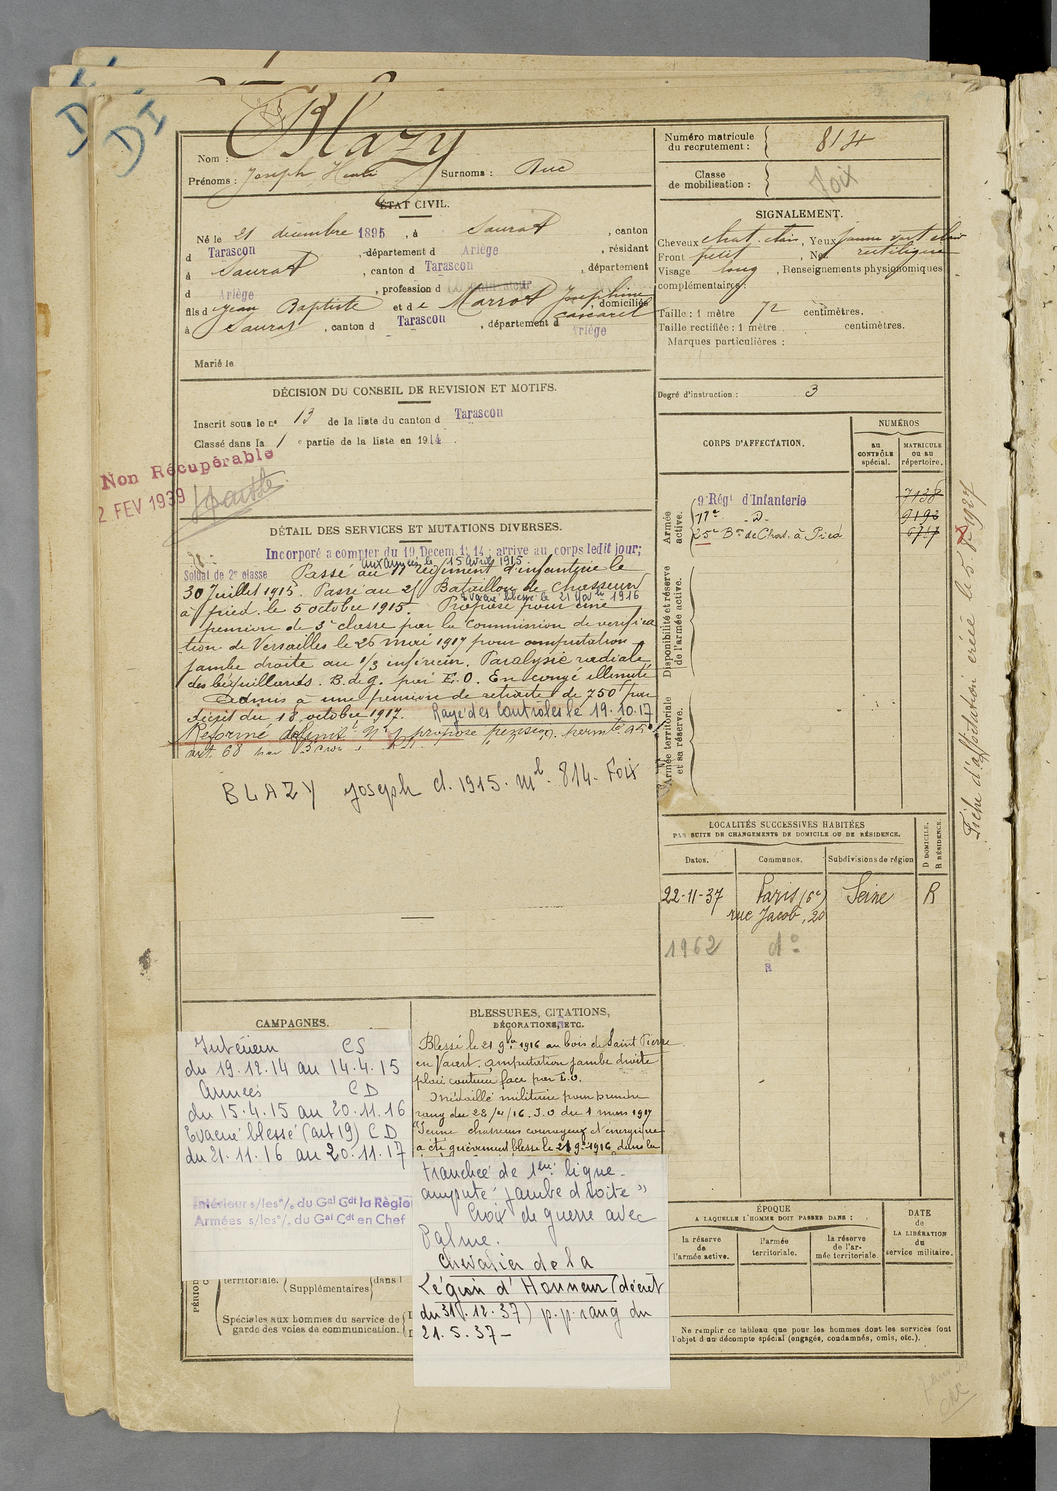 DI
DI
Nom : Blazy
Prénoms : Joseph Henri Surnoms : Ruc
ÉTAT CIVIL.
Né le 21 décembre 1895, à Saurat, canton
d Tarascon, département d Ariège, résidant
à Saurat, canton d Tarascon, département
d Ariège, profession d
fils d Jean Baptiste et de Marrot Joséphine, domiciliés
à Saurat, canton d Tarascon, département d Ariège
Marié le
DÉCISION DU CONSEIL DE REVISION ET MOTIFS.
Inscrit sous le nº 13 de la liste du canton d Tarascon
Classé dans la 1 e partie de la liste en 1914.
Non Récupérable
2 FEV 1939
DÉTAIL DES SERVICES ET MUTATIONS DIVERSES.
Incorporé à compter du 19 Decem. 1914; arrivé au corps ledit jour;
aux armées le 15 avril 1915
Soldat de 2e classe Passé au 11e régiment d'infanterie le
30 Juillet 1915. Passé au 25 Bataillon de Chasseurs
Evacué blessé le 21 Novbre 1916
à pied le 5 octobre 1915. Proposé pour une
pension de 3e classe par la Commission de vérifica
tion de Versailles le 26 mai 1917 pour amputation
jambe droite au 1/3 inférieur. Paralysie radiale
des béquillards. B. de g. par E.O. En congé illimité
Admis à une pension de retraite de 750f par
décret du 18 octobre 1917. Rayé des Contrôles le 19.10.17
Réformé définit t Nº 1 proposé pension permte
art. 68
BLAZY Joseph cl. 1915. Ml. 814. Foix
CAMPAGNES.
Intérieur CS
du 19.12.14 au 14.4.15
Armées CD
du 15.4.15 au 20.11.16
Evacué blessé (art 19) CD
du 21.11.16 au 20.11.17
Intérieur s/les º/. du Gal Cdt la Régio
Armées s/les º/. du Gal Cdt en Chef
PÉRIOD
territoriale. Supplémentaires dans l
Spéciales aux hommes du service de
garde des voies de communication.
BLESSURES, CITATIONS,
DÉCORATIONS, ETC.
Blessé le 21 9bre 1916 au bois de Saint Pierre
en Vaast. amputation jambe droite
plaie continue face par E.O.
Médaillé militaire pour prendre
rang du 28/11/16. J.O du 1 mars 1917
"Jeune chasseur courageux et énergique
a été grièvement blessé le 21 9bre 1916 dans la
tranchée de 1ère ligne.
amputé jambe droite"
Croix de guerre avec
Palme.
Chevalier de la
Légion d'Honneur (décret
du 31.12.37) p.p. rang du
21.5.37-
Numéro matricule
du recrutement : 814
Classe
de mobilisation :
Foix
SIGNALEMENT.
Cheveux chat. clair, Yeux jaune vert clair
Front petit, Nez rectiligne
Visage long, Renseignements physionomiques
complémentaires :
Taille : 1 mètre 72 centimètres.
Taille rectifiée : 1 mètre centimètres.
Marques particulières :
Degré d'instruction : 3
CORPS D'AFFECTATION.
NUMÉROS
au
CONTRÔLE
spécial.
MATRICULE
ou au
répertoire.
Armée
active.
9e Régt d'Infanterie 7138
11e -d- 9193
25e Bon de Chas. à Pied 6717
Disponibilité et réserve
de l'armée active.
Armée territoriale
et sa réserve.
Fiche d'affectation créée le 5 1927
LOCALITÉS SUCCESSIVES HABITÉES
PAR SUITE DE CHANGEMENTS DE DOMICILE OU DE RÉSIDENCE.
D DOMICILE.
R RÉSIDENCE.
Dates. Communes. Subdivisions de région
22-11-37 Paris (6e) Seine R
rue Jacob, 20
1962 do
R
ÉPOQUE
A LAQUELLE L'HOMME DOIT PASSER DANS :
la réserve
de
l'armée active.
l'armée
territoriale.
la réserve
de l'ar-
mée territoriale.
DATE
de
LA LIBÉRATION
du
service militaire.
Ne remplir ce tableau que pour les hommes dont les services font
l'objet d'un décompte spécial (engagés, condamnés, omis, etc.).